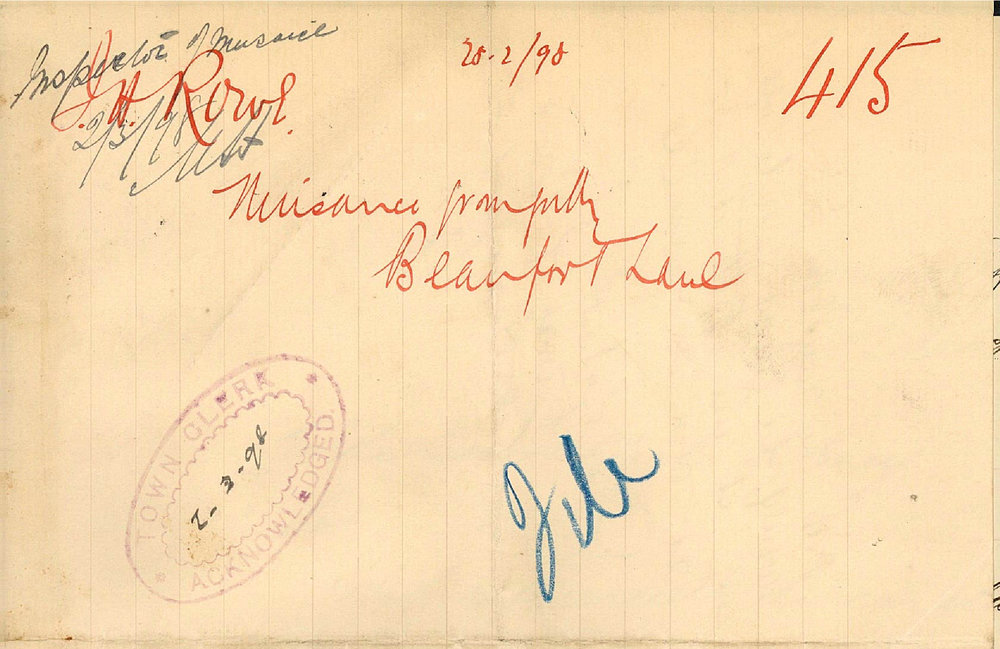 Inspector of Nusaice
28-2/98
415
J.H. Rowe.
2/3/98
Nuisance from filthy
Beaufort Lane
TOWN CLERK
2-3-98
ACKNOWLEDGED.
File